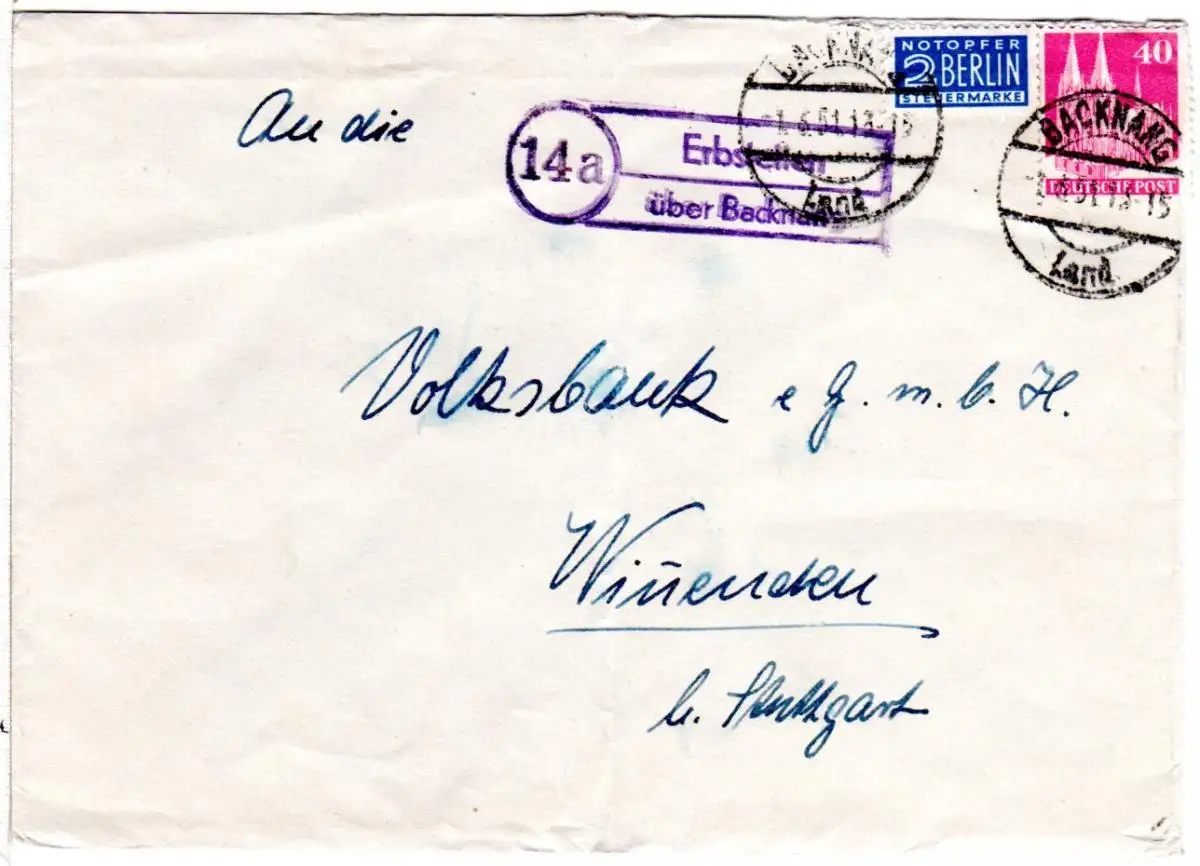 NOTOPFER
2 BERLIN
STEUERMARKE
40
DEUTSCHE POST
BACKNANG
6.51.13-15
Land
BACKNANG
6.51.13-15
Land
14a
Erbstetten
über Backnang
An die
Volksbank e G. m. b. H.
Winnenden
b. Stuttgart